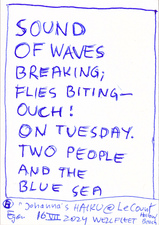 SOUND
OF WAVES
BREAKING;
FLIES BITING—
OUCH!
ON TUESDAY.
TWO PEOPLE
AND THE
BLUE SEA
"Johanna's HAIKU @ LeCount
Egon 16 VII 2024 WELLFLEET Hollow Beach